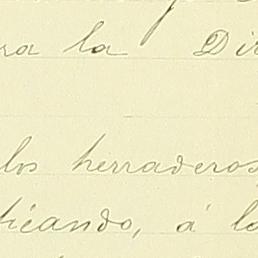 ra la Dir
los herraderos
ticando, á la